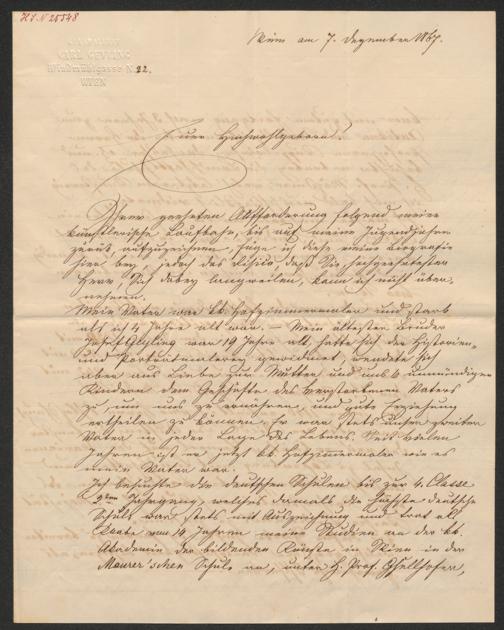 H.I.N 25548
CARL GEYLING
Windmühlgasse N. 22.
WIEN
Wien am 7. Dezember 1867.
Euer Hochwohlgeboren!
Ihrer geehrten Aufforderung folgend meine
künstlerische Laufbahn, bis auf meine Jugendjahre
zurück aufzuzeichnen, füge ich diese meine Biografie
hier bey, jedoch das Risico, daß Sie, hochgeehrtester
Herr, sich dabey langweilen, kann ich nicht über-
nehmen.
Mein Vater war kk. Hofzimmermaler und starb
als ich 4 Jahre alt war. – Mein ältester Bruder
Josef Geyling war 19 Jahre alt, hatte sich der Historien-
und Portraitmalerey gewidmet, wendete sich
aber aus Liebe zur Mutter und uns 6 unmündigen
Kindern dem Geschäfte des verstorbenen Vaters
zu, um uns zu ernähren, und gute Erziehung
ertheilen zu können. Er war stets unser zweiter
Vater in jeder Lage des Lebens. Seit vielen
Jahren ist er jetzt kk. Hofzimmermaler wie es
mein Vater war.
Ich besuchte die deutschen Schulen bis zur 4. Classe
2ten Jahrgang, welches damals die höchste deutsche
Schule war stets mit Auszeichnung und trat als
Knabe von 14 Jahren meine Studien an der kk.
Akademie der bildenden Künste in Wien in der
Maurer'schen Schule an, unter H. Prof. Gsellhofer,